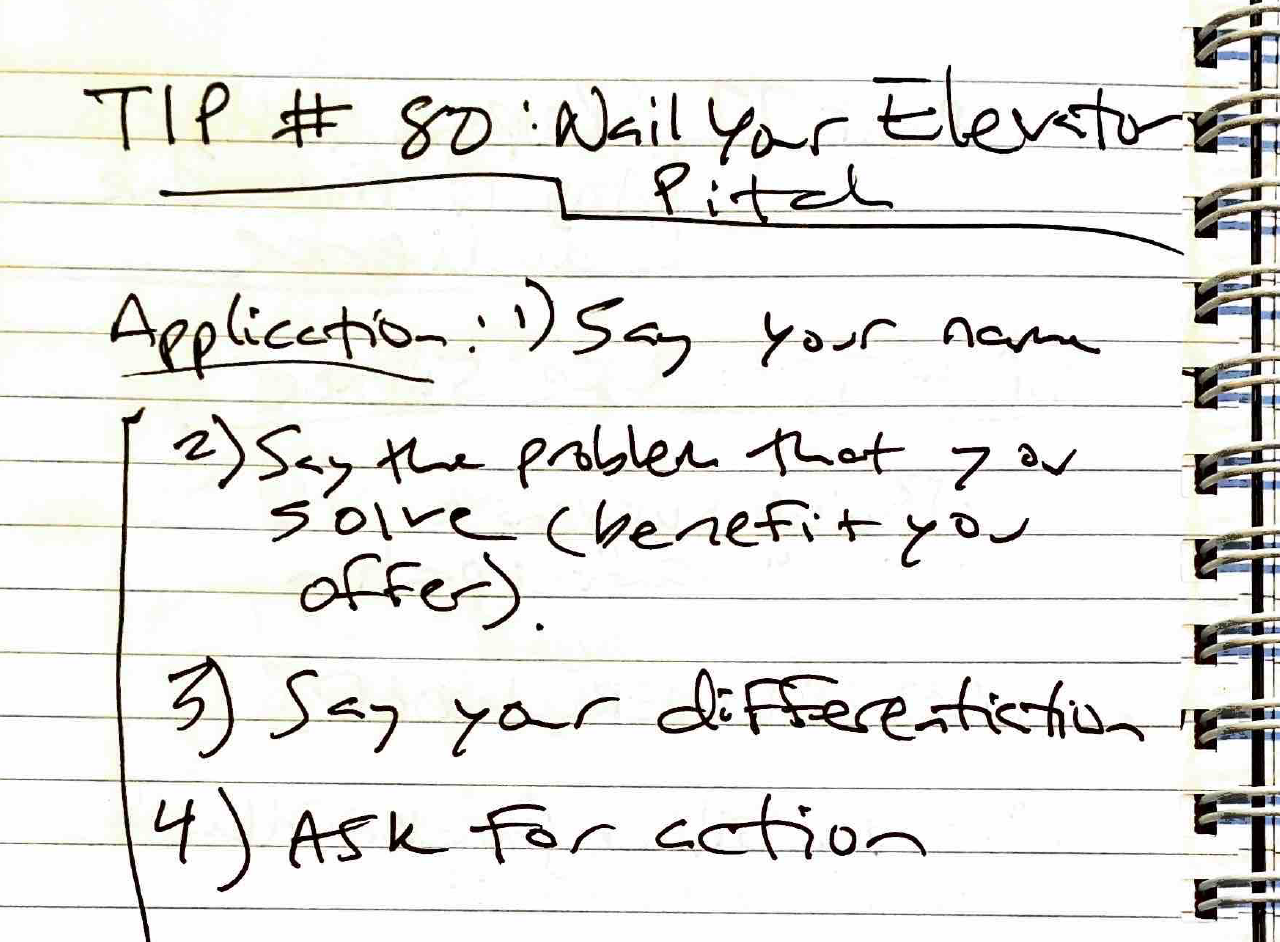 TIP # 80: Nail Your Elevator
Pitch
Application: 1) Say your name
2) Say the problem that you
solve (benefit you
offer).
3) Say your differentiation
4) Ask for action